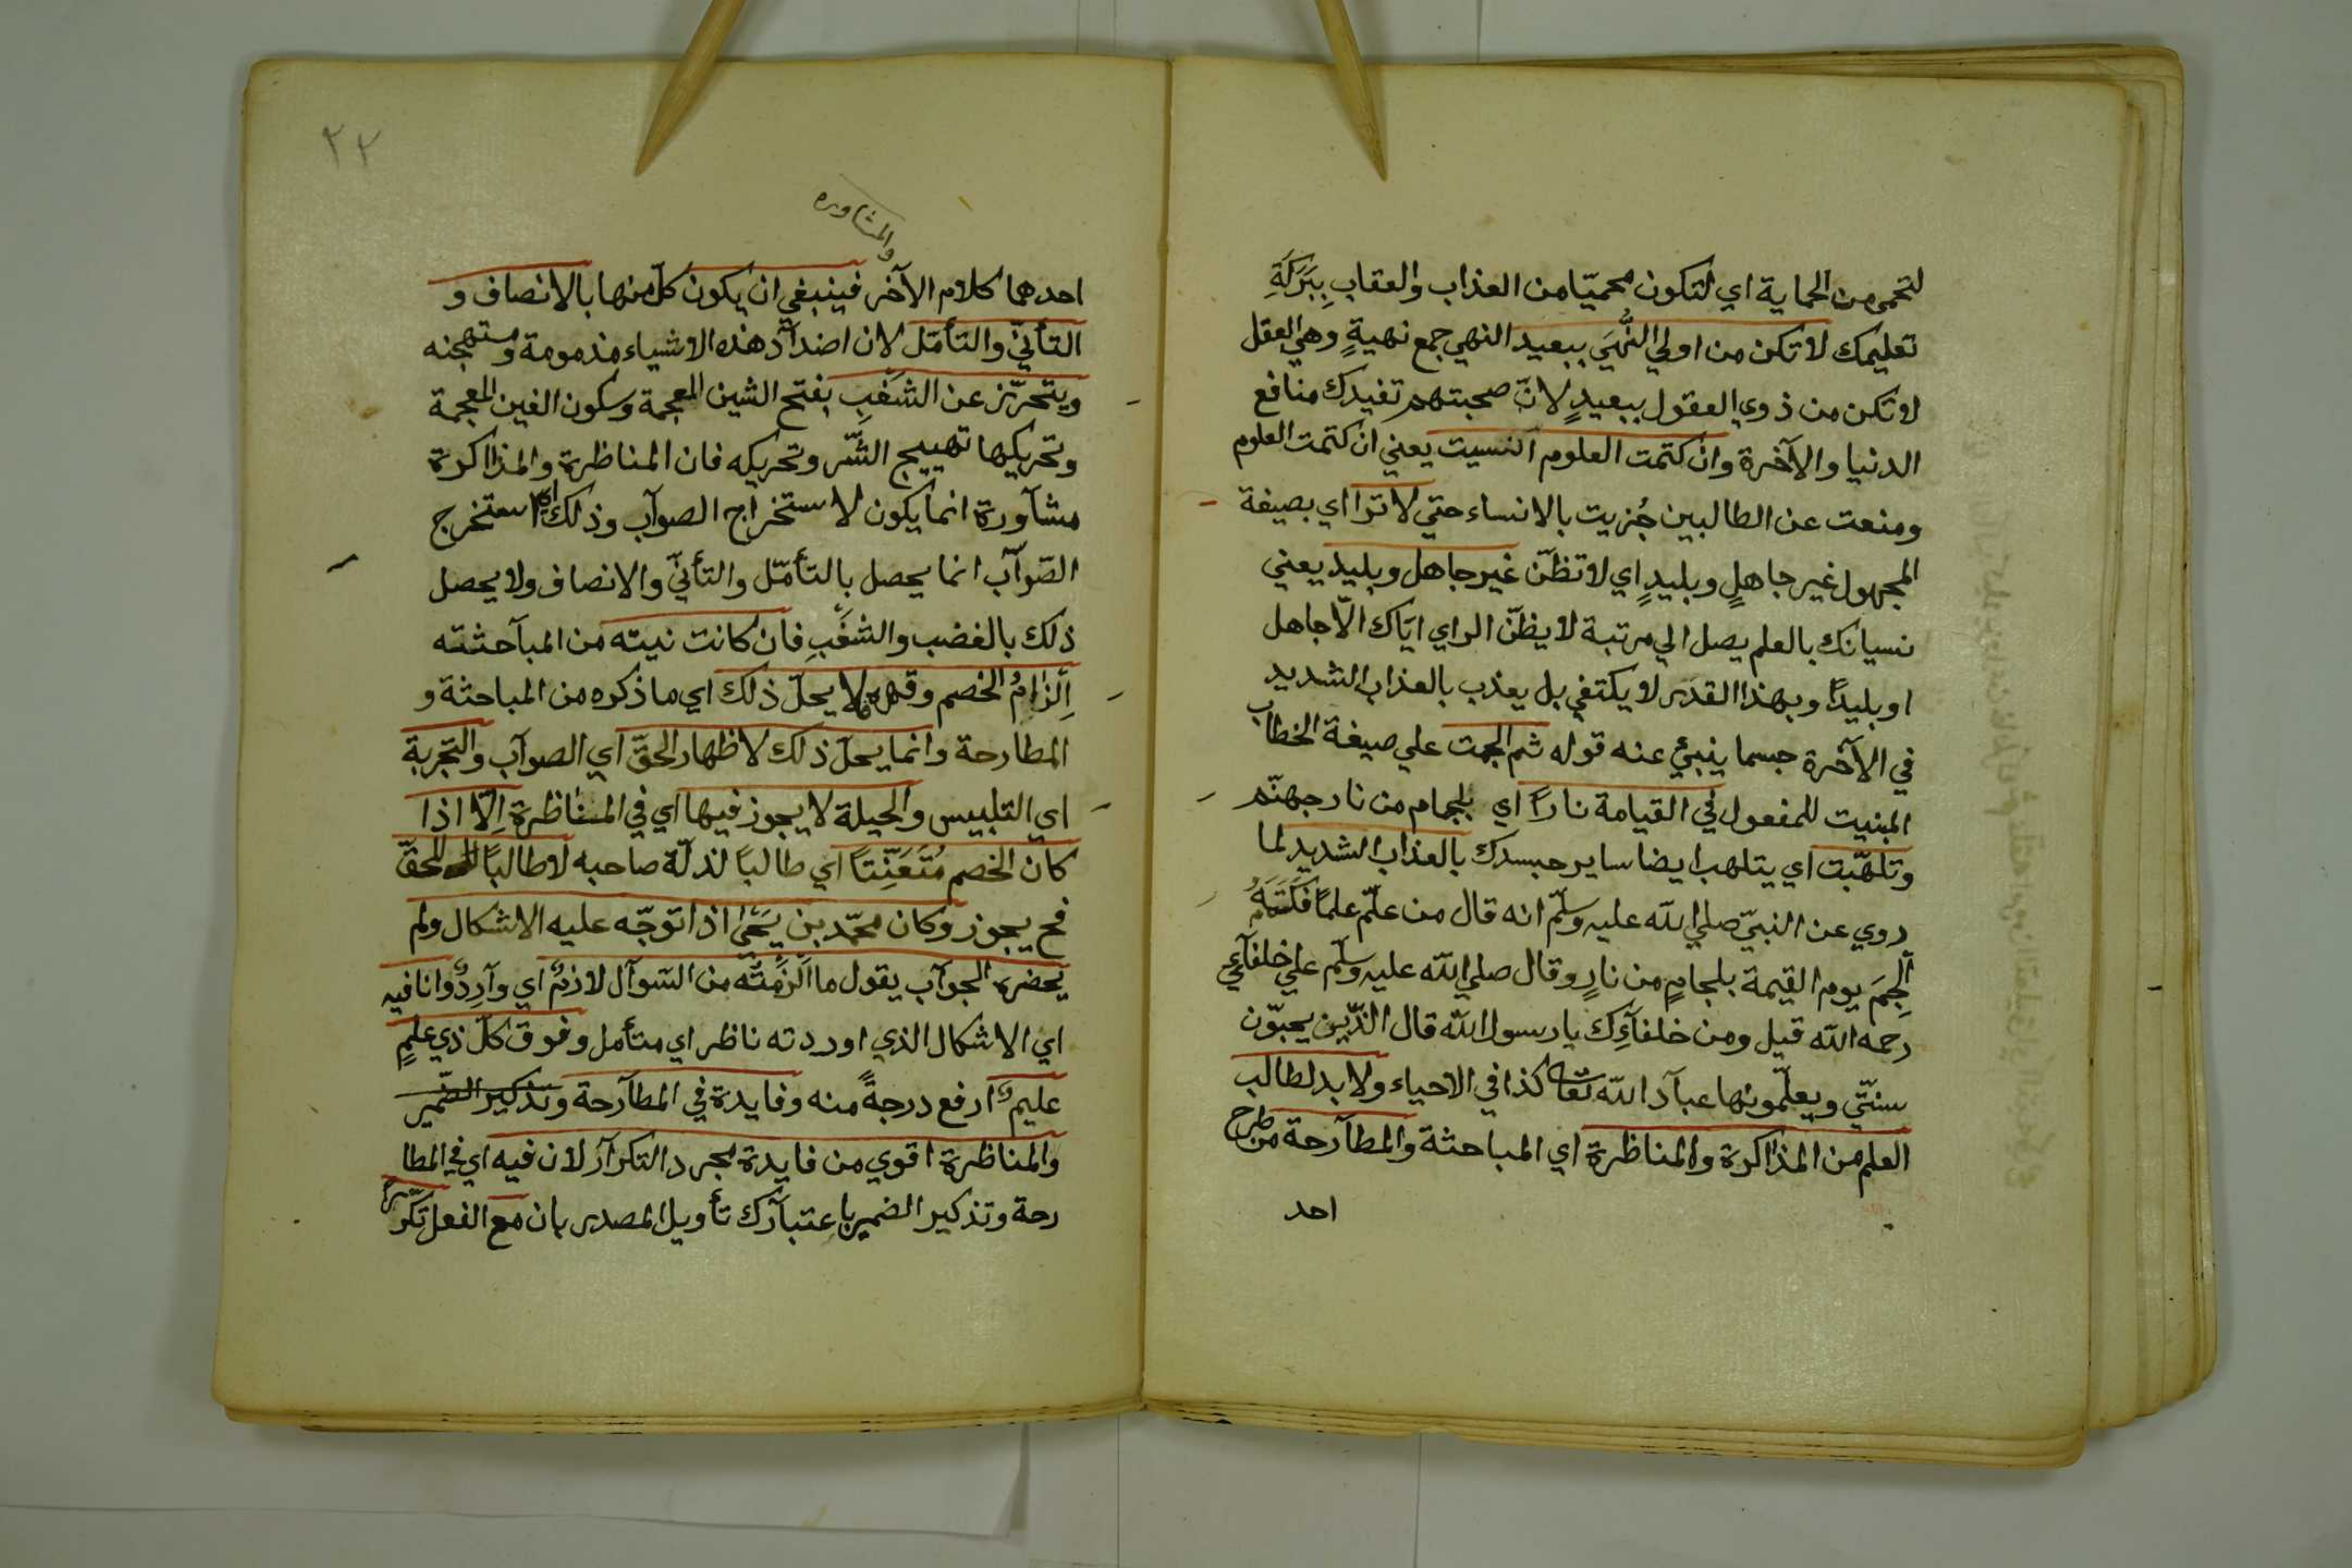 لتحمى من الحماية اي لتكون محميّا من العذاب والعقاب بِبَرَكَةِ
تعليمك لا تكن من اولي النُّهَي ببعيد النهي جمع نهيةٍ وهي العقل
لا تكن من ذوي العقول ببعيدٍ لانّ صحبتهم تفيدك منافع
الدنيا والآخرة وان كتمت العلوم انسيت يعني ان كتمت العلوم
ومنعت عن الطالبين جُزيت بالانساء حتي لا ترا اي بصيغة
المجهول غير جاهلٍ وبليدٍ اي لا تظنّ غير جاهل وبليد يعني
نسيانك بالعلم يصل الي مرتبة لا يظنّ الراي ايّاك الّا جاهل
او بليدًا وبهذا القدر لا يكتفي بل يعذب بالعذاب الشديد
في الآخرة حسما ينبئ عنه قوله ثم الجمت علي صيغة الخطاب
المبنيت للمفعول في القيامة نارًا اي بلجام من نار جهنّم
وتلهّبت اي يتلهب ايضا ساير جسدك بالعذاب الشديد لما
روي عن النبيّ صلي الله عليه وسلّم انه قال من علّم علمًا فَكَتَمَهُ
اُلجِمَ يوم القيمة بلجامٍ من نارٍ وقال صلي الله عليه وسلّم علي خلفآئي
رحمه الله قيل ومن خلفآؤِك يا رسول الله قال الذّين يحبّون
سنتّي ويعلّمونها عبآد الله تعا كذا في الاحياء ولا بد لطالب
العلم من المذاكرة والمناظرة اي المباحثة والمطآرحة من طرح
احد
٢٢
والمشاوره
احدهما كلام الآخر فينبغي ان يكون كلّ منها بالانصاف و
التأنيّ والتأمّل لان اضدآد هذه الاشياء مذمومة ومستهجنه
ويتحرّز عن الشَغَبِ بفتح الشين المعجمة وسكون الغين المعجمة
وتحريكها تهييج الشّر وتحريكه فان المناظرة والمذاكرة
مشآورة انما يكون لاستخراج الصوآب وذلك اي استخرج
الصّوآب انما يحصل بالتأمّل والتأنيّ والانصاف ولا يحصل
ذلك بالغضب والشغَبِ فان كانت نيته من المبآحثته
اِلزامُ الخصم وقهره لا يحلّ ذلك اي ما ذكره من المباحثة و
المطارحة وانما يحلّ ذلك لاظهار الحقّ اي الصوآب والتّجربة
اي التلبيس والحيلة لا يجوز فيها اي في المناظرة اِلّا اذا
كان الخصم مُتَعَنِّتاً اي طالباً لذلّة صاحبه لا طالباً للحقّ
فح يجوز وكان محمّد بن يَحَيٰ اذا توجّه عليه الاشكال ولم
يحضره الجوآب يقول ما اَلزَمتَه من السّوآل لازمٌ اي وآرِدٌ وانا فيه
اي الاشكال الذي اوردته ناظر اي متأمل وفوق كلّ ذي علمٍ
عليمٌ ارفع درجةً منه وفايدة في المطآرحة وتذكير الضّمير
والمناظرة اقوي من فايدة لمجرد التكرآر لان فيه اي في المطا
رحة وتذكير الضمير باعتبآرك تأويل المصدر بان مع الفعل تكّرراً